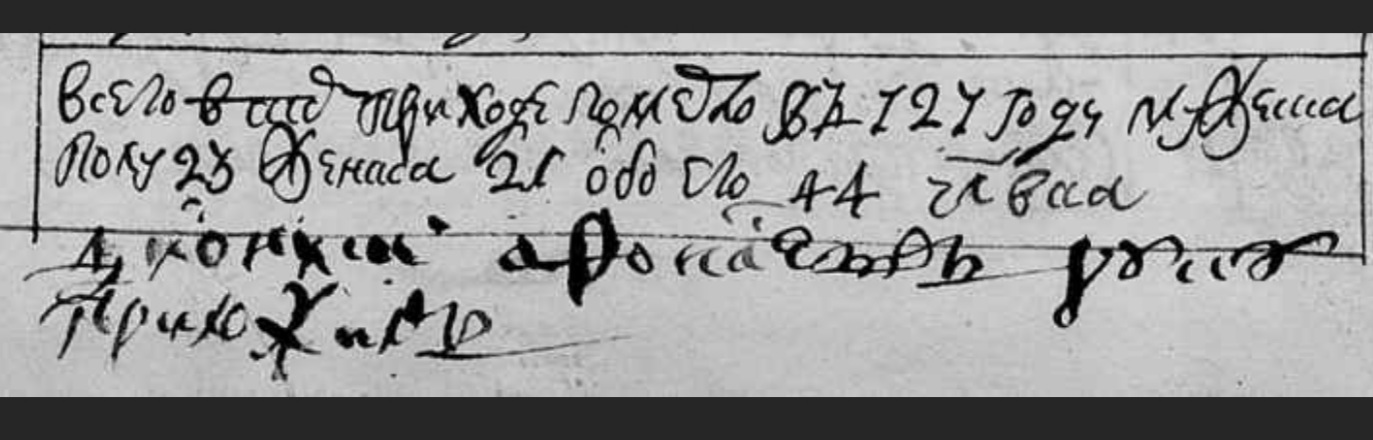 всего в приходе померло въ 1727 году мужеска
полу 23 женска 21 обоего 44 члвка
Диаконъ афонасей
приложил